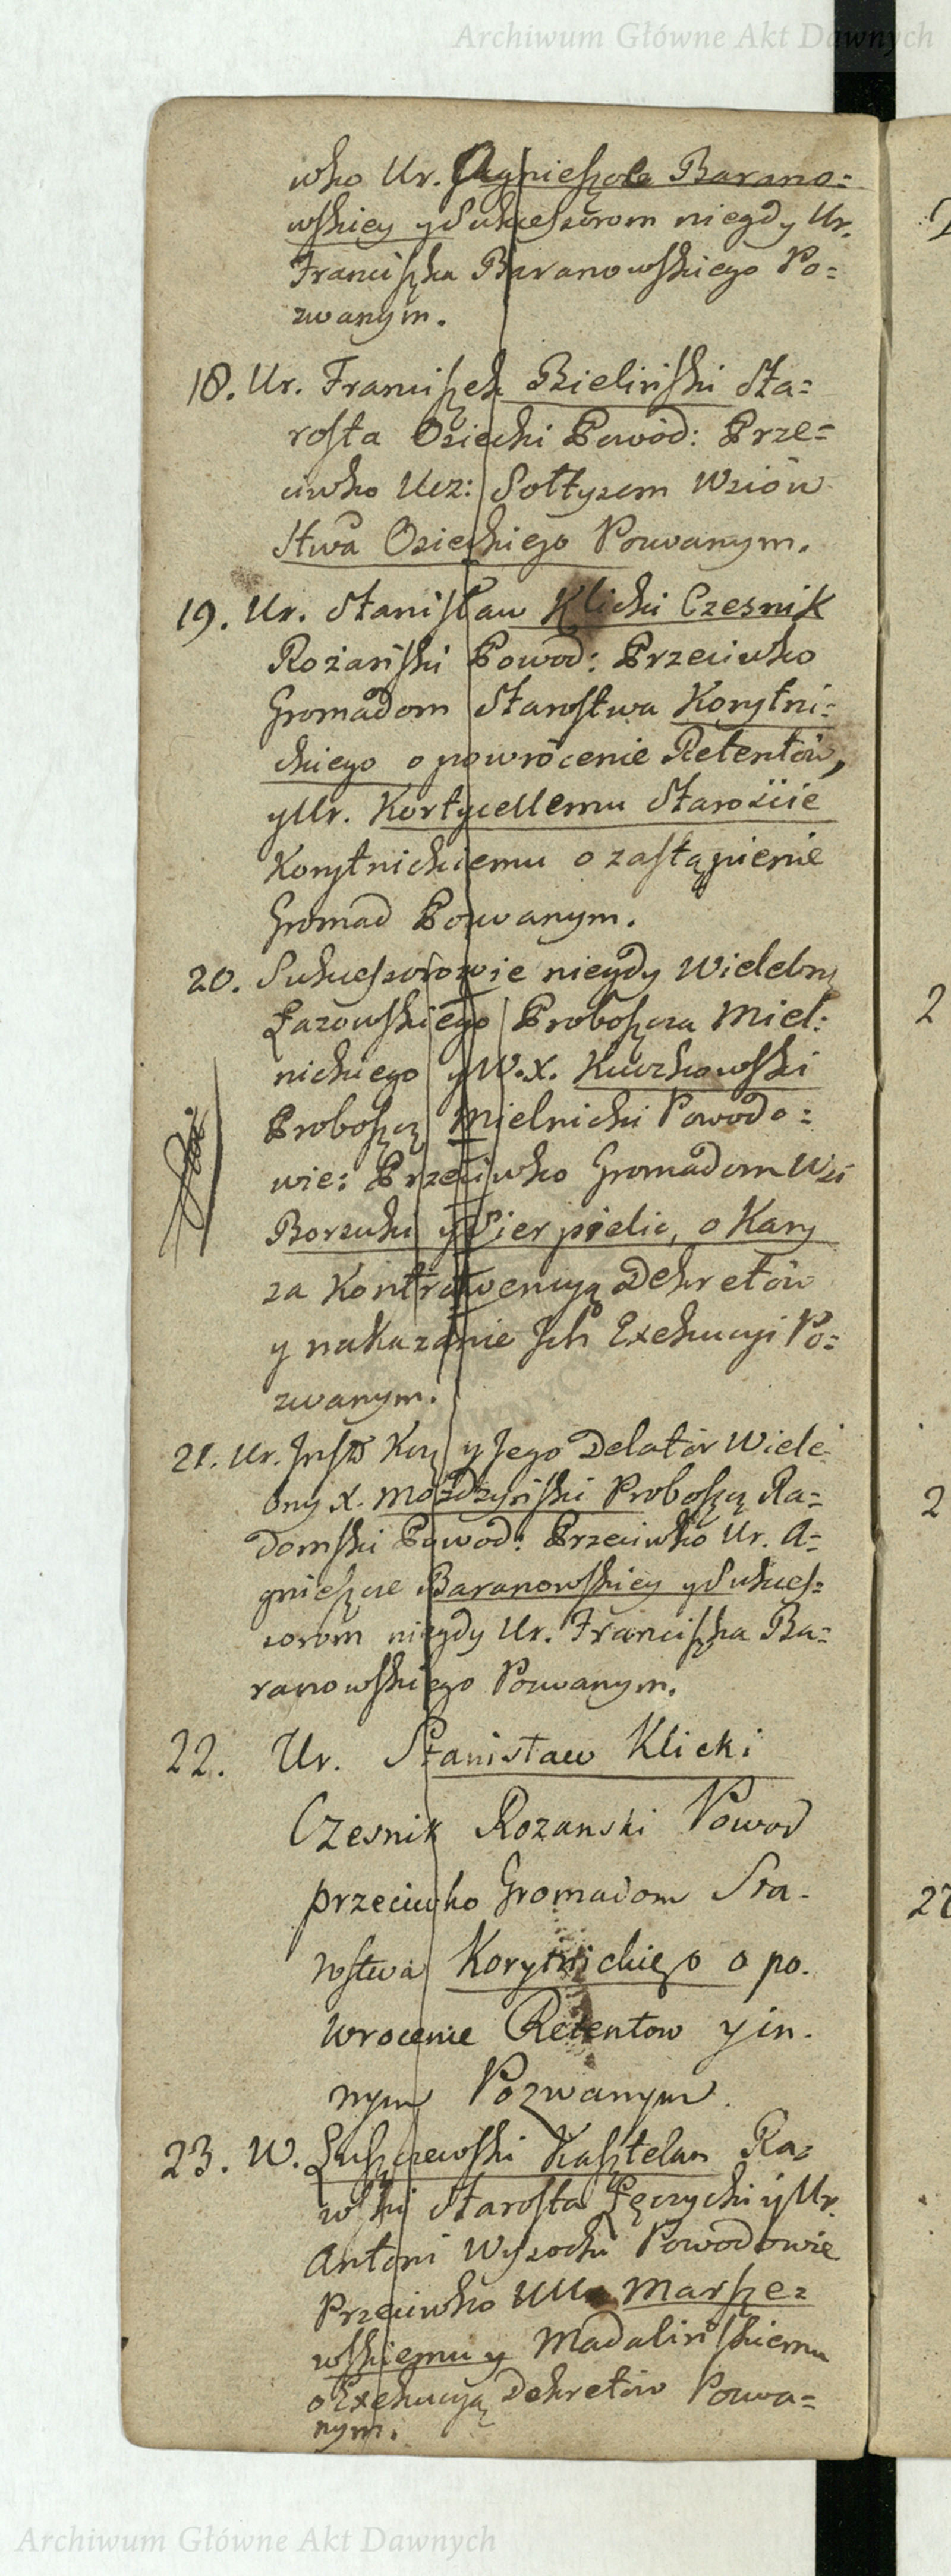 Archiwum Główne Akt Dawnych
wko Ur. Agnieszce Barano=
wskiey y Sukcessorom niegdy Ur.
Franciszka Baranowskiego Po=
zwanym.
18. Ur. Franciszek Bieliński Sta=
rosta Osiecki Powód: Prze=
ciwko Ucz: Sołtysom Wsiów
Stwa Osieckiego Pozwanym.
19. Ur. Stanisław Klicki Czesnik
Rożański Powod: Przeciwko
Gromadom Starostwa Korytni=
ckiego o powrócenie Retentów,
y Ur. Kortycellemu Staroście
Korytnickiemu o zastąpienie
Gromad Pozwanym.
20. Sukcessorowie niegdy Wielebny
Łazowskiego Proboszcza Miel:
nickiego y W. X. Kuczkowski
Proboszcz Mielnicki Powodo=
wie: Przeciwko Gromadom Wsi
Borsuki y Sierpielic, o Kary
za Kontrawencyą Dekretów
y nakazanie Ich Exekucyi Po=
zwanym.
21. Ur. Inst Kor y Jego Delator Wiele
bny X. Mozdzyński Proboszcz Ra=
domski Powod: Przeciwko Ur. A=
gnieszce Baranowskiey y Sukces=
sorom niegdy Ur. Franciszka Ba=
ranowskiego Pozwanym.
22. Ur. Stanisław Klicki
Czesnik Rozanski Powod
przeciwko Gromadom Sta-
rostwa Korytnickiego o po.
wrocenie Retentow y in.
nym Pozwanym.
23. W. Łuszczewski Kasztelan Ra=
wski Starosta Łęczycki y Ur.
Antoni Wysocki Powodowie
Przeciwko UUr Marsze=
wskiemu y Madalińskiemu
o Exekucyą Dekretów Pozwa=
nym.
Archiwum Główne Akt Dawnych